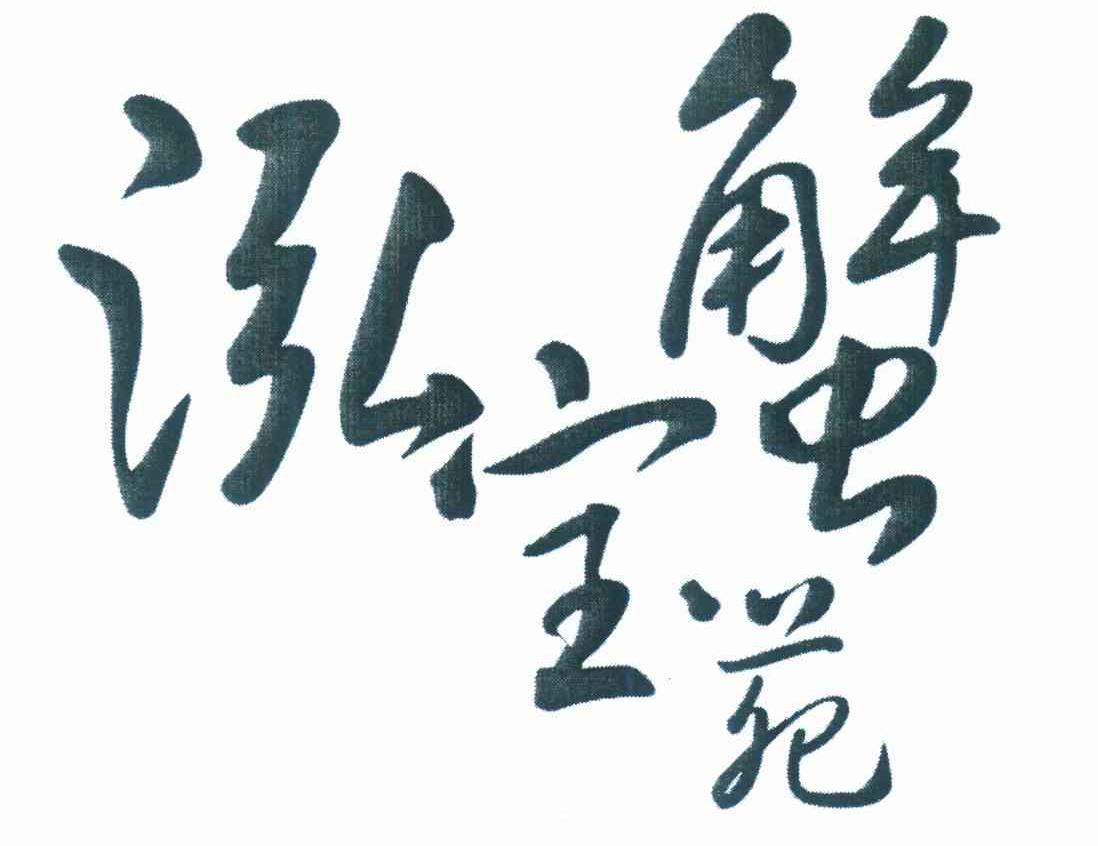 泓宝蟹苑